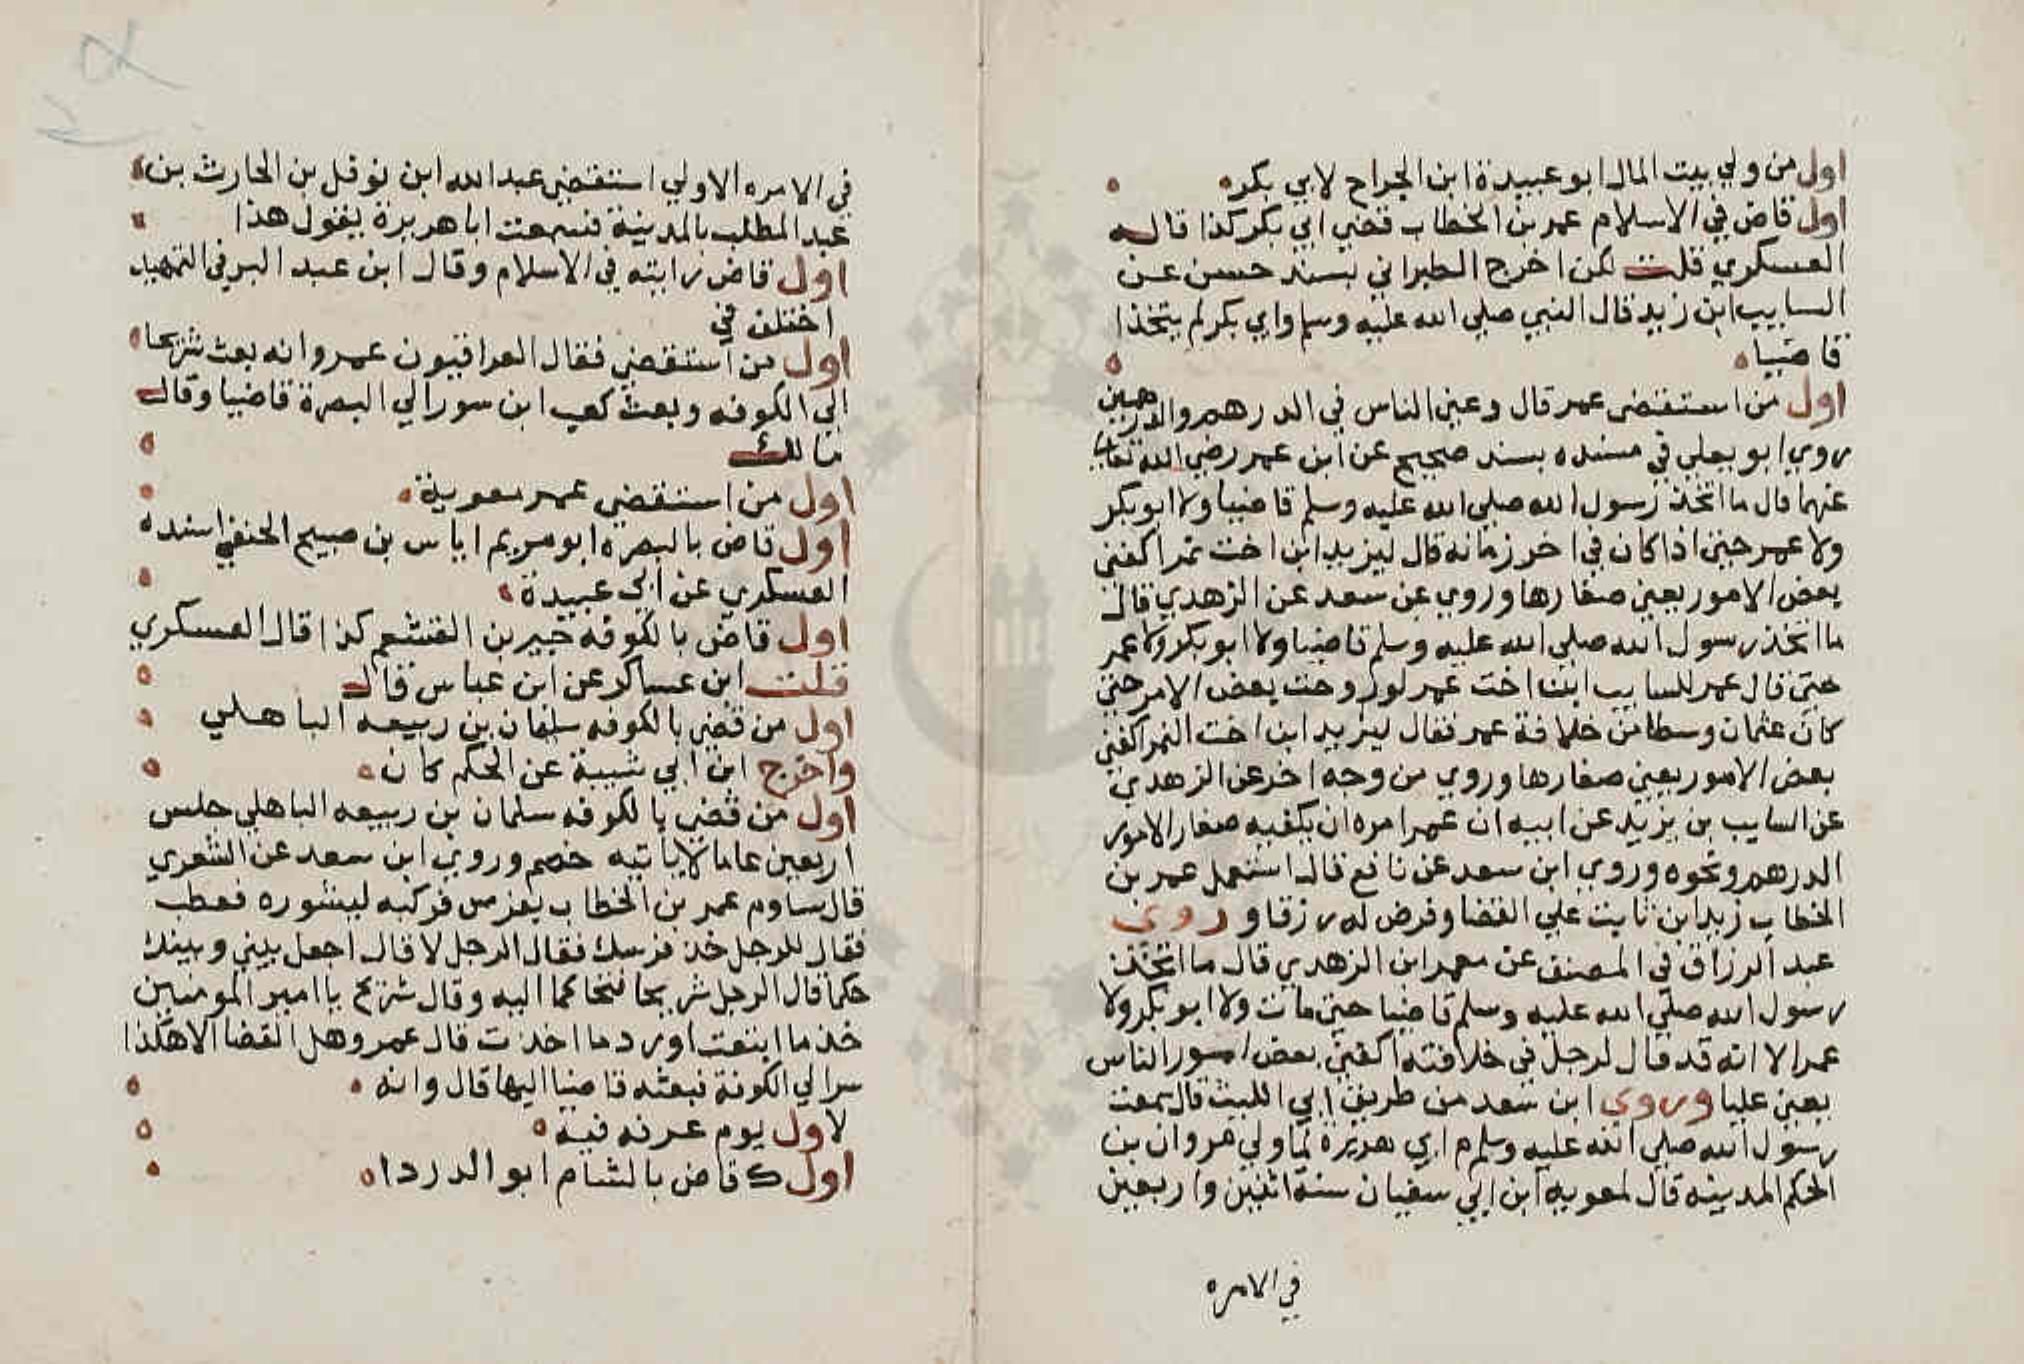 اول من ولي بيت المال ابو عبيدة ابن الجراح لابي بكر
اول قاض في الاسلام عمر بن الخطاب قضي ابي بكر كذا قاله
العسكري قلت لكن اخرج الطبراني بسند حسن عن
السايب ابن زيد قال النبي صلي الله عليه وسلم وابي بكر لم يتخذا
قاضيا
اول من استقضي عمر قال وعني الناس في الدرهم والدرهمين
روي ابو يعلي في مسنده بسند صحيح عن ابن عمر رضي الله تعالي
عنهما قال ما اتخذ رسول الله صلي الله عليه وسلم قاضيا ولا ابو بكر
ولا عمر حتي اذا كان في اخر زمانه قال ليزيد ابن اخت نمر اكفني
بعض الامور يعني صغارها وروي عن سعد عن الزهدي قال
ما اتخذ رسول الله صلي الله عليه وسلم قاضيا ولا ابو بكر ولا عمر
حتي قال عمر للسايب ابن اخت عمر لو روحت بعض الامر حتي
كان عثمان وسطا من خلافة عمر فقال ليزيد ابن اخت النمر اكفني
بعض الامور يعني صغارها وروي من وجه اخر عن الزهدي
عن السايب بن يزيد عن ابيه ان عمر امره ان يكفيه صغار الامور
الدرهم ونحوه وروي ابن سعد عن نافع قال استعمل عمر بن
الخطاب زيد ابن ثابت علي القضا وفرض له رزقا وروي
عبد الرزاق في المصنف عن معمر ابن الزهدي قال ما اتخذ
رسول الله صلي الله عليه وسلم قاضيا حتي مات ولا ابو بكر ولا
عمر الا انه قد قال لرجل في خلافته اكفني بعض امور الناس
يعني عليا وروي ابن سعد من طريق ابي الليث قال سمعت
رسول الله صلي الله عليه وسلم م ابي هريرة لما ولي مروان بن
الحكم المدينه قال لمعويه ابن ابي سفيان سنة اثنين واربعين
في الامره
في الامره الاولي استقضي عبد الله ابن نوفل بن الحارث بن
عبد المطلب بالمدينة فسمعت ابا هريرة يقول هذا
اول قاض رايته في الاسلام وقال ابن عبد البر في التمهيد
اختلف في
اول من استقضي فقال العراقيون عمر وانه بعث شريحا
الي الكوفه وبعث كعب ابن سور الي البصرة قاضيا وقال
مالك
اول من استقضي عمر معوية
اول قاض بالبصره ابو مريم اياس بن صبيح الحنفي اسنده
العسكري عن ابي عبيدة
اول قاض بالكوفه جبير بن القشعم كذا قال العسكري
قلت ابن عساكر عن ابن عباس قال
اول من قضي بالكوفه سلمان بن ربيعه الباهلي
واخرج ابن ابي شيبة عن الحكم كان
اول من قضي بالكوفه سلمان بن ربيعه الباهلي جلس
اربعين عاما لا ياتيه خصم وروي ابن سعد عن الشعري
قال ساوم عمر بن الخطاب بفرس فركبه ليشوره فعطب
فقال للرجل خذ فرسك فقال الرجل لا قال اجعل بيني وبينك
حكما قال الرجل شريحا فتحاكما اليه وقال شريح يا امير المومنين
خذ ما ابتعت او رد ما اخذت قال عمر وهل القضا الا هكذا
سر الي الكوفة فبعثه قاضيا اليها قال وانه
لاول يوم عرفه فيه
اول قاض بالشام ابو الدردا